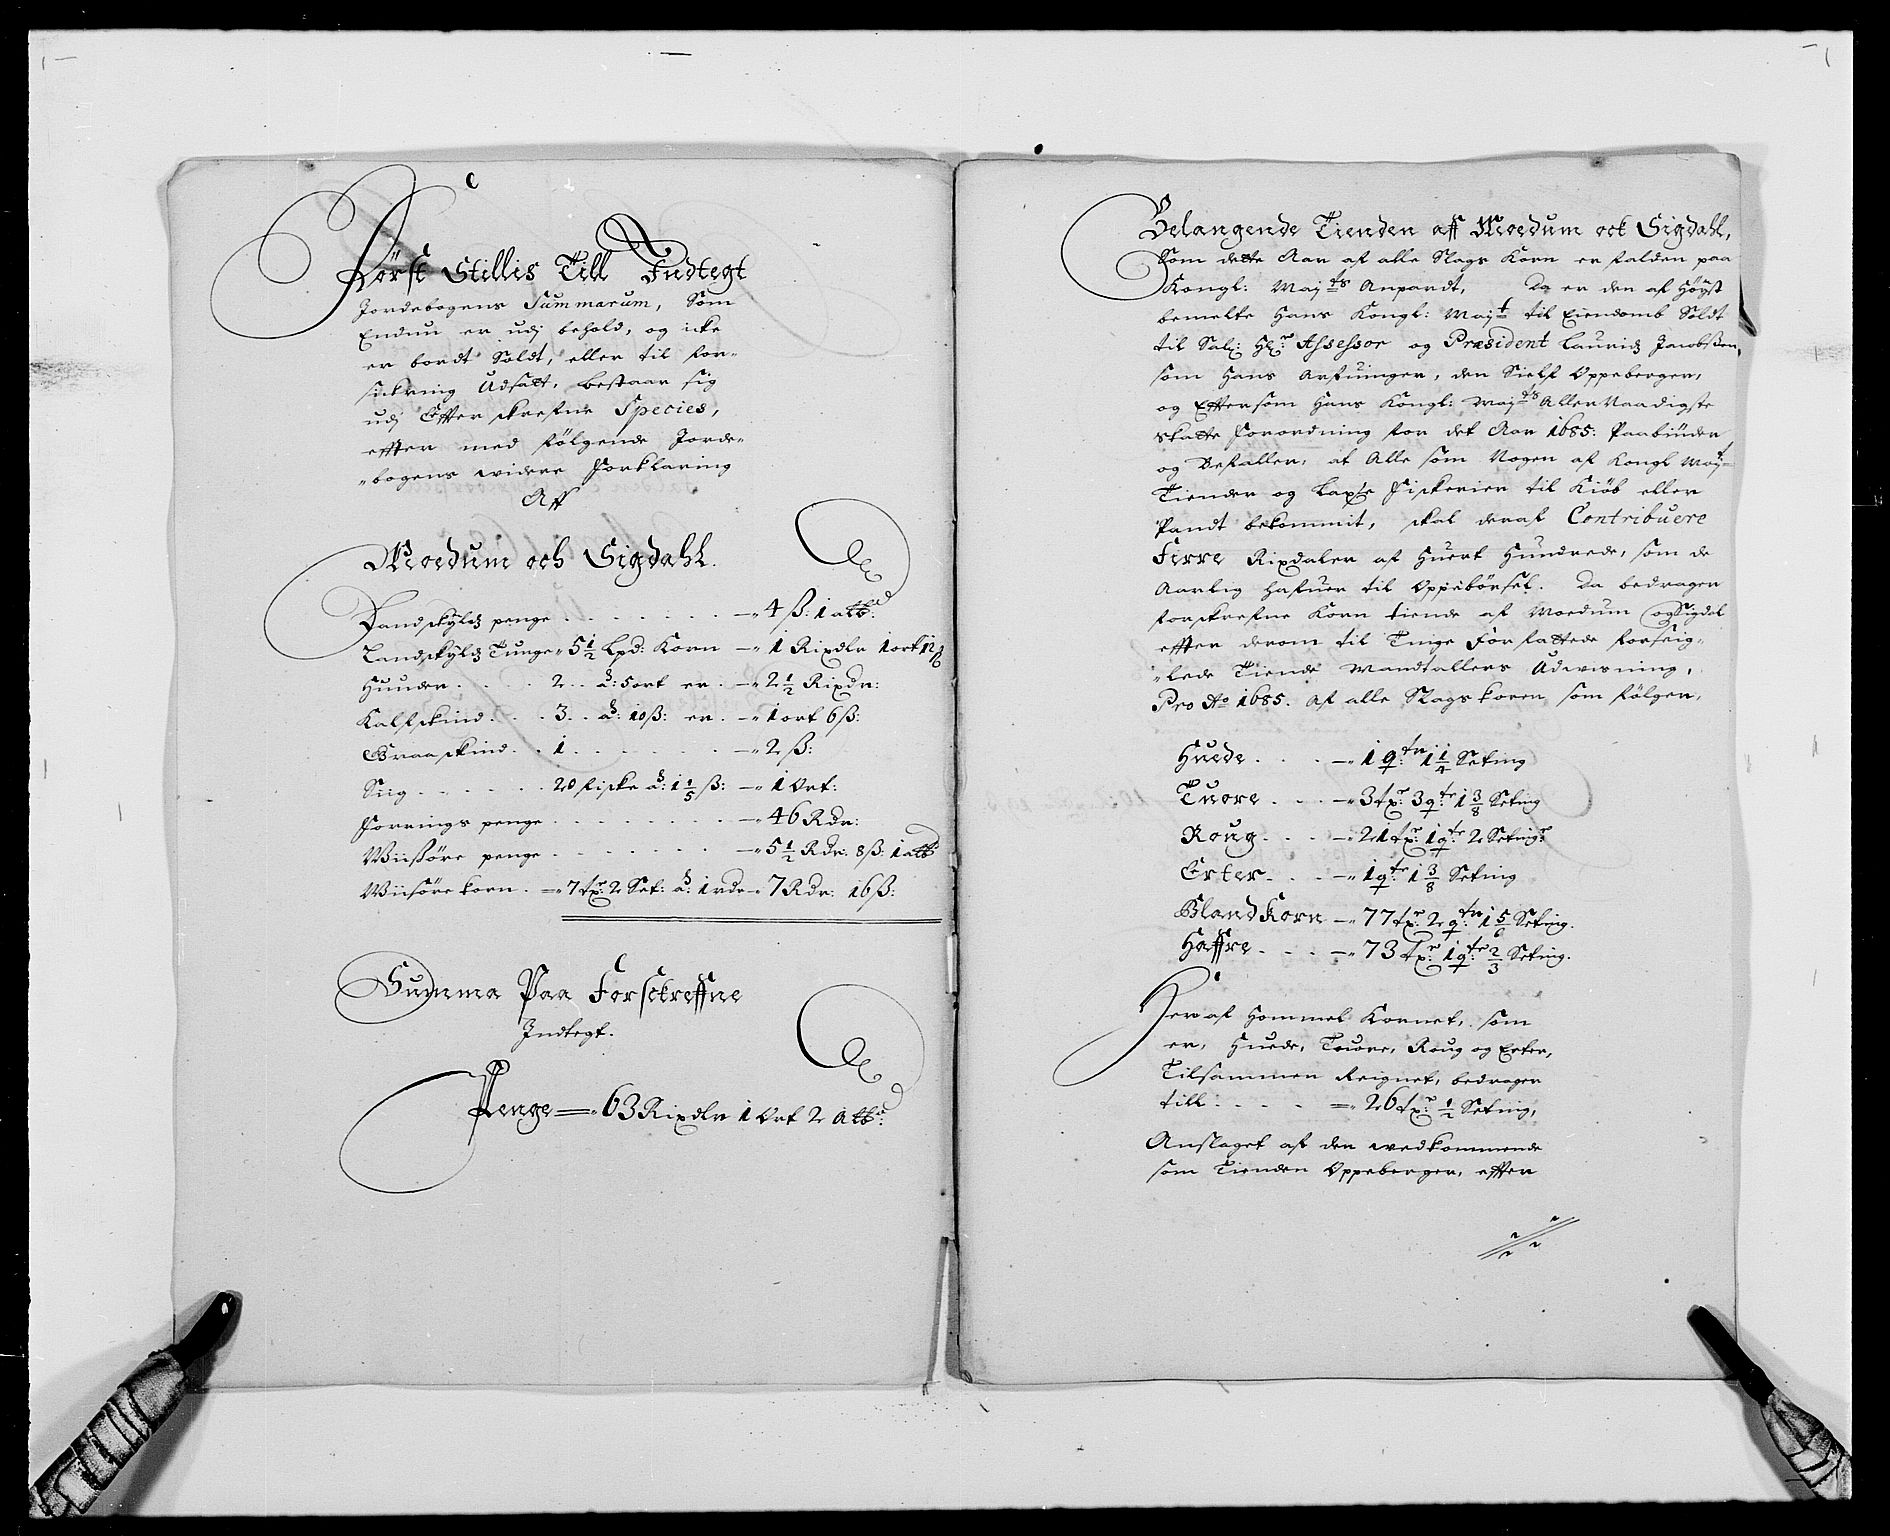 Først Stillis Till Indtegt
Jordebogens Summarum, Som
Endnu er udj behold, og icke
er bordt Soldt, eller til for-
sickring Udsatt, bestaar sig
udj Effterskrefne Species,
effter med følgende Jorde-
bogens widere Forklaring
Aff
Moedum och Sigdahl.
Landskyldz penge . . . . . . . 4 ß: 1 alb:
Landskyldz Tunge 5 1/2 Lpd: Korn — 1 Rixdlr 1 ort 12 ß
Huuder . . . . 2 . . á: 5 ort er . — 2 1/2 Rixdr:
Kalfskind . . . 3 . . á: 10 ß: er . — 1 ort 6 ß:
Graaskind . . 1 . . . . . . — 2 ß:
Siig . . . . . . 20 fiske á: 1 1/5 ß: — 1 Ort:
Forrings penge . . . . . . . . — 46 Rdr:
Wiissøre penge . . . . . . . — 5 1/2 Rdr: 8 ß: 1 alb
Wiisøre korn . = 7 tr: 2 Set: á: 1 rdr — 7 Rdr: 16 ß:
Summa Paa Forsckreffne
Indtegt.
Penge = 63 Rixdlr 1 Ort 2 Alb:
Belangende Tienden aff Moedum ock Sigdahl,
Som dette Aar af alle Slags Korn er falden paa
Kongl: Maj:ts Anpardt, Da er den af Høyst
bemelte Hans Kongl: Maj:t til Eiendomb Soldt
til Sal: Hr: Assessor og Præsident Lauridz Jacobssen,
som Hans Arfuinger, den Sielf Oppeberger,
og Eftersom Hans Kongl: Maj:ts AllerNaadigste
Skatte Forordning for det Aar 1685: Paabinder
og Befaller, at Alle som Nogen af Kongl Maj:t
Tiender og Laxe Fiskerier til Kiøb eller
Pandt bekommit, skal deraf Contribuere
Firre Rixdaler af Huert Hundrede, som de
Aarlig Hafuer til Oppebørsel. Da bedrager
forskrefne Korn tiende af Moedum og Sigdal
effter derom til Tinge Forfattede forseig-
lede Tiende Mandtallers Udwisning,
Pro Ao 1685. af alle Slags koren som følger,
Huede . . . . — 1 q:tr 1 1/4 Seting
Tuore . . . — 3 tr: 3 q:tr 1 3/8 Seting
Roug . . . . — 21 tr: 1 q:tr 2 Seting:
Erter . . . — 1 q:tr 1 3/8 Seting
Bland Korn — 77 tr: 2 q:tr 1 5/6 Seting.
Haffre . . . . — 73 tr: 1 q:tr 2/3 Seting.
Her af Hommel Kornet, som
er, Huede, Tuore, Roug og Erter,
Tilsammen Reignet, bedrager
till . . . . . = 26 tr: 1/2 Seting,
Anslaget af den wedkommende
som Tienden Oppeberger, effter